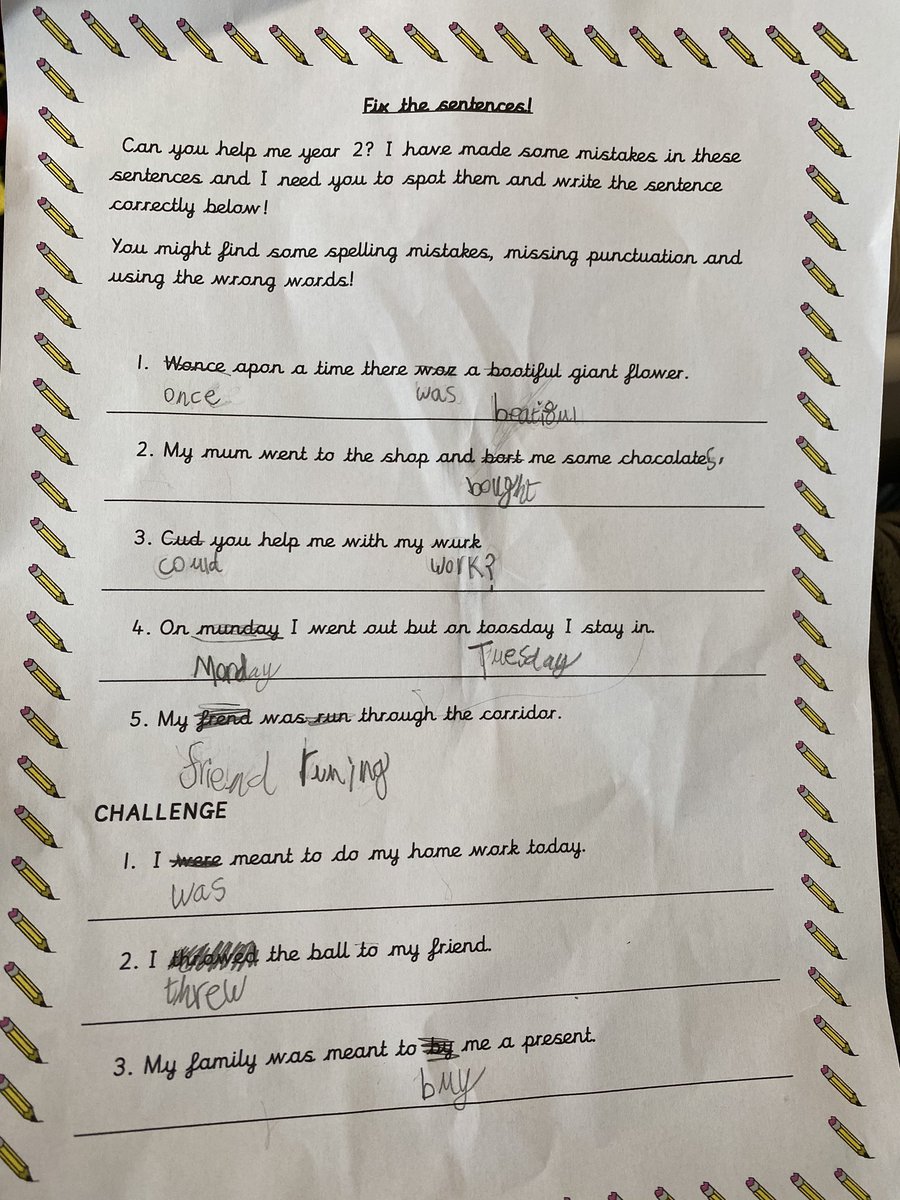 Fix the sentences!
Can you help me year 2? I have made some mistakes in these
sentences and I need you to spot them and write the sentence
correctly below!
You might find some spelling mistakes, missing punctuation and
using the wrong words!
1. Wonce apon a time there woz a bootiful giant flower.
once was
beatiful
2. My mum went to the shop and bort me some chocolates,
bought
3. Cud you help me with my wurk
could work?
4. On munday I went out but on toosday I stay in.
Monday Tuesday
5. My frend was run through the corridor.
friend runing
CHALLENGE
1. I were meant to do my home work today.
was
2. I throwed the ball to my friend.
threw
3. My family was meant to by me a present.
buy